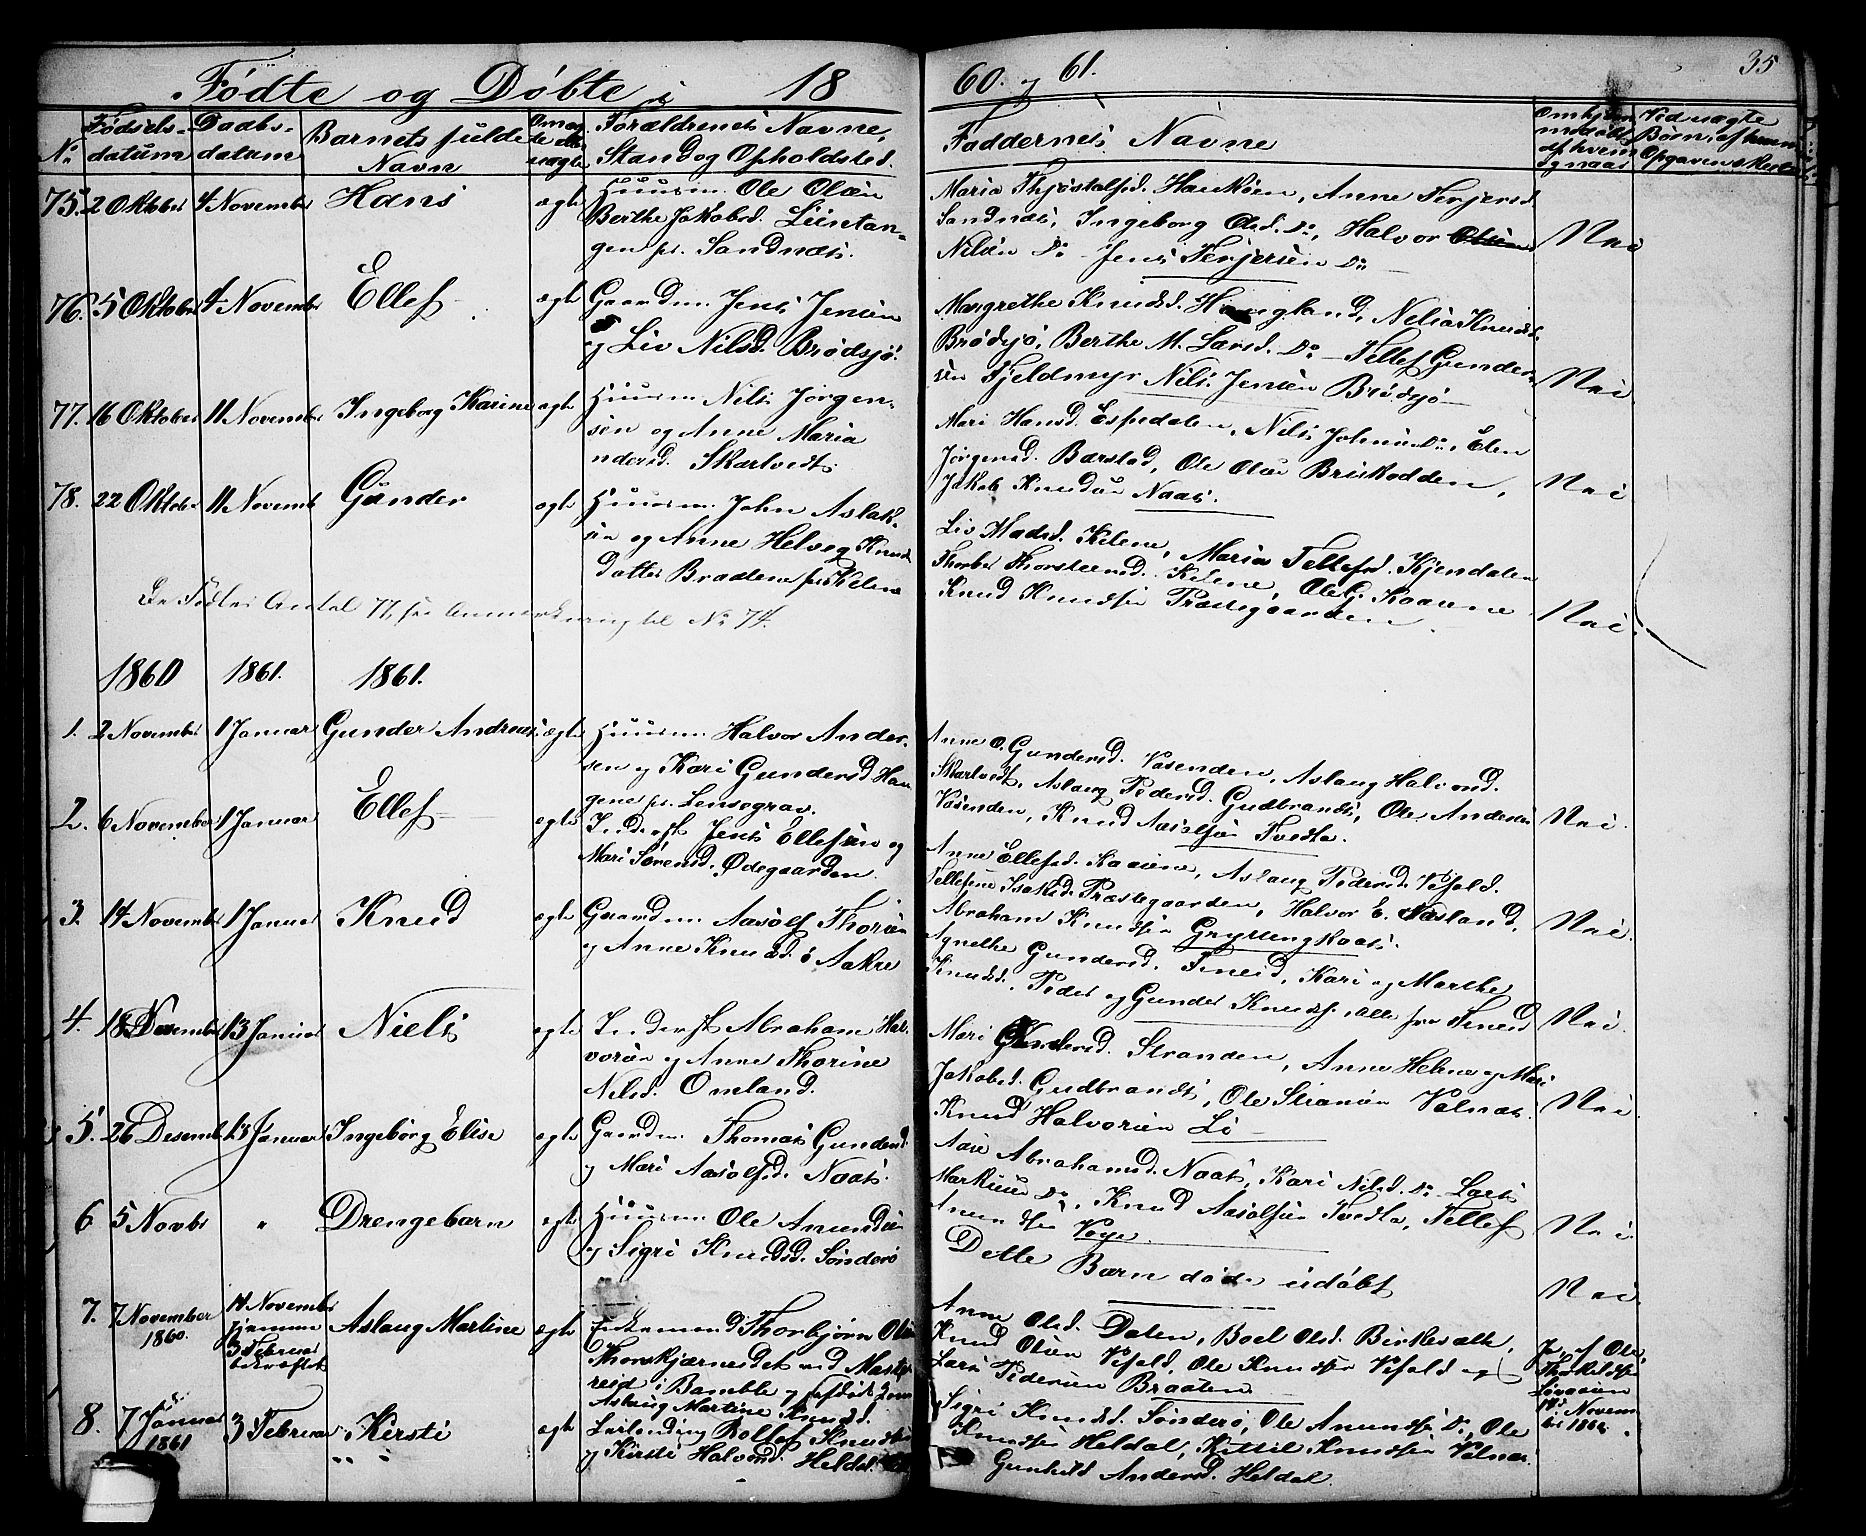 35
Fødte og Døbte i 18 60. og 61.
No
Fødsels-
datum
Daabs-
datum
Barnets fulde
Navn
Om æg-
te eller
uægte
Forældrenes Navne,
Stand og Opholdsted.
Faddernes Navne
75. 2 Oktober 4 November Hans ægte
Huusm. Ole Olsen
Berthe Jakobsd. Lientan-
gen pr. Sandnæs.
Maria Thjøstolfsd. Haukøen, Anne Terjersd.
Sandnæs, Ingeborg Olsd. Do, Halvor Olsen
Nilsen Do Jens Terjersen Do
Nei
76. 5 Oktober 4 November Ellef ægte
Gaardm. Jens Jensen
og Liv Nilsd. Brødsjø.
Margrethe Knudsd. Haugland, Nilsia Knudsd.
Brødsjø, Berthe M. Larsd. Do Tellef Gunder-
sen Fjeldmyr Nils Jensen Brødsjø
Nei
77. 16 Oktober 11 November Ingeborg Karine ægte
Huusm. Nils Jørgen-
sen og Anne Maria
ndersd. Skarlvedt.
Mari Hansd. Espedalen, Nils Johnsen Do, Elen
Jørgensd. Barstad, Ole Olsen Briskodden,
Jakob Knudsen Naas.
Nei
78. 22 Oktober 11 Novemb Gunder ægte
Huusm. John Aslak-
sen og Anne Helveg Knuds
datter Braatene pr. Kilene
Liv Madsd. Kilene, Maria Tellefsd. Kjendalen
Thorber Thorsteensd. Kilene, Ole G. Kaasene
Knud Knudsen Præstegaarden.
Nei.
De Fødtes Antal 77, see Anmærkning til No 74.
1860 1861. 1861.
1. 2 November 1 Januar Gunder Andreas ægte
Huusm. Halvor Ander-
sen og Kari Gundersd. Hau
gene pr. Lensegrav.
Anne O. Gundersd. Vasenden, Aslaug Halvorsd.
Skarlvedt, Aslaug Pedersd. Gudbrandsi, Ole Andersen
Vasenden, Knud Aasolfsen Tvedta.
Nei.
2. 6 November 1 Januar Ellef ægte
Inderst Jens Ellefsen og
Mari Sørensd. Ødegaarden.
Anne Ellefsd. Kaasene, Aslaug Pedersd. Vefald.
Tellefine Isaksd. Præstegaarden, Halvor E. Næsland,
Abraham Knudsen Gryttingkaas.
Nei.
3. 14 November 1 Januar Knud ægte
Gaardm. Aasolf Thorsen
og Anne Knudsd. Aakre
Agnethe Gundersd. Sneid, Kari og Marthe
Knudsd. Peder og Gunder Knuds. alle fra Sneid
Nei.
4. 18 Desember 13 Januar Niels ægte
Inderst Abraham Hal-
vorsen og Anne Thorine
Nilsd. Omland.
Mari Gundersd. Stranden, Anne Helene og Mari
Jakobsd. Gudbrandsi, Ole Stianson Valnæs.
Knud Halvorsen Li
Nei.
5. 26 Desemb. 13 Januar Ingebørg Elise ægte
Gaardm. Thomas Gundersd.
og Mari Aasolfsd. Naas.
Aase Abrahamsd. Naas, Kari Nilsd. Do Lars
Markusen Do, Knud Aasolfsen Tvedta, Tellef
Anundsen Voje
Nei.
6 5 Novbr " Drengebarn ægte
Huusm. Ole Anundsen
og Sigri Knudsd. Sønderø
Dette Barn døde udøbt
Nei.
7. 7 November
1860.
11 November
hjemme
3 Februar
bekræftet
Aslaug Martine ægte
Enkemand Thorbjørn Olsen
Aslaug Martine Knudsd.
Anne Olsd. Dalen, Boel Olsd. Birkevalle,
Knud Olsen Vefald, Ole Knudsen Vefald og
Lars Pedersen Braaten
Ja, af Ole
Thorkildsen
11 Novem
ber 1860.
8. 7 Januar
1861
3 Februar Kirsti ægte
Rollef Knudsen
og Kirsti Halvorsd. Heldal.
Sigri Knudsd. Sønderø, Ole Anundsen Do, Ole
Knudsen Heldal, Kittil Knudsen Valnæs.
Gunhild Andersd. Heldal.